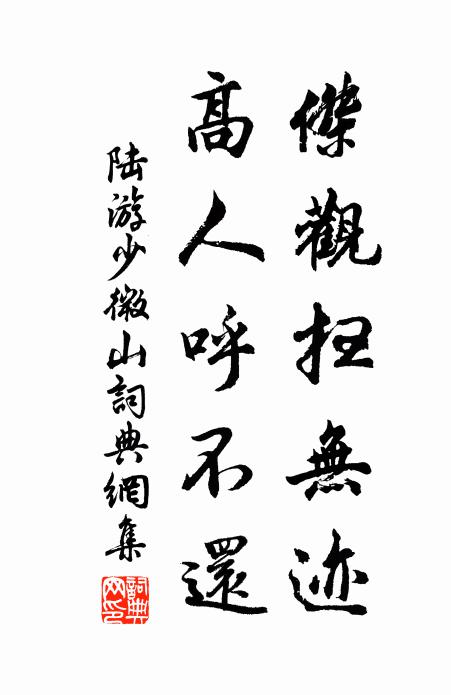 傑觀扫無迹
高人呼不還
陆游少微山詞典網集
詞典網印